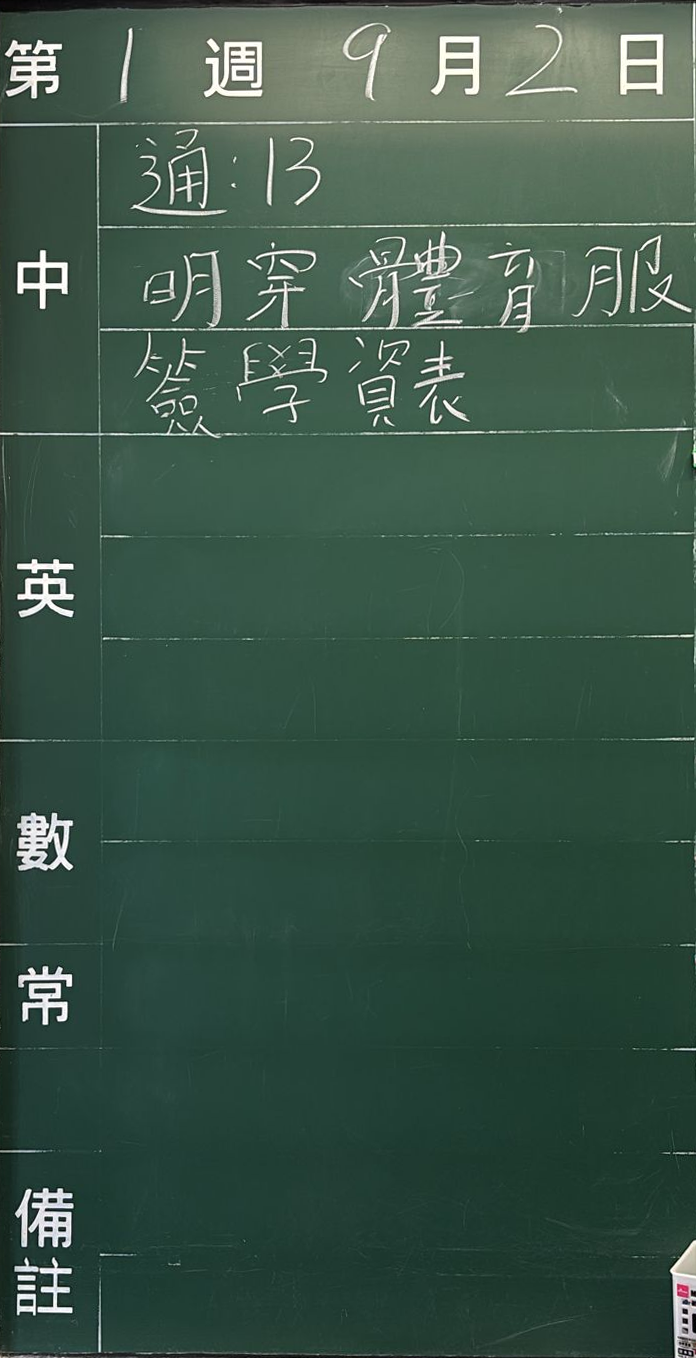 第1週 9月2日
中
通:13
明穿體育服
簽學資表
英
數
常
備註